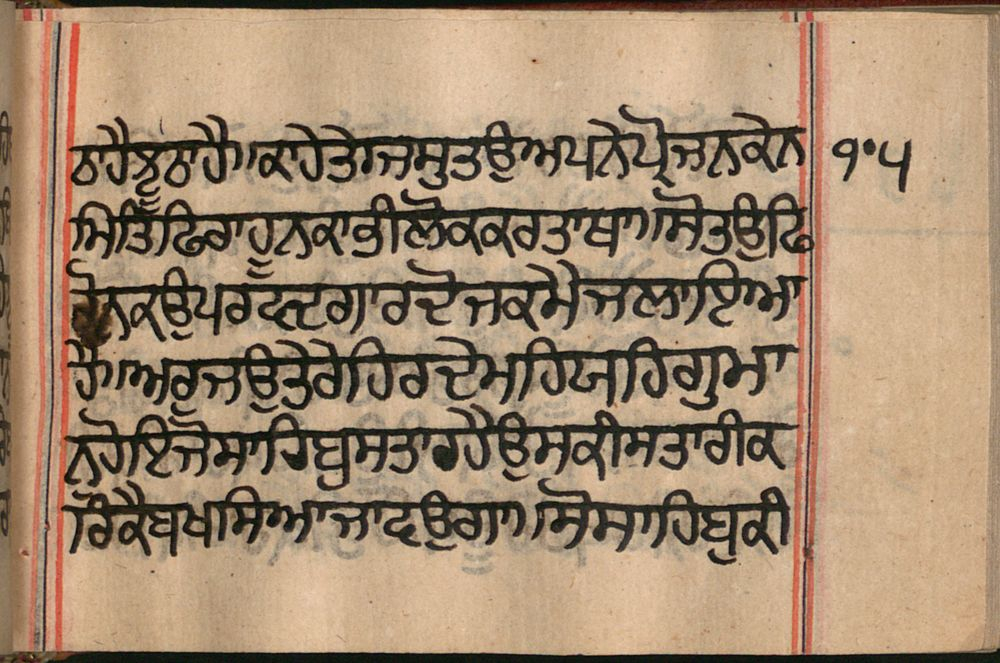 ਠਾਹੈਝੂਠਾਹੈ॥ਕਾਹੇਤੇਜਸੁਤਉਅਪਨੇਪ੍ਰੋਜਨਕੇਨ ੧੦੫
ਮਿਤਿਫਿਰਾਹੂਨਕਾਭੀਲੋਕਕਰਤਾਥਾ॥ਸੋਤਉਫਿ
ਨਕਉਪਰਵਦਗਾਰਦੋਜਕਮੈਜਲਾਇਆ
ਹੈ॥ਅਰੁਜਉਤੇਰੇਹਿਰਦੇਮਹਿਯਹਿਗੁਮਾ
ਨਹੋਇਜੋਸਾਹਿਬੁਸਤਾਰਹੈਉਸਕੀਸਤਾਰੀਕ
ਰਿਕੈਬਖਸਿਆਜਾਵਉਗਾ॥ਸੋਸਾਹਿਬੁਕੀ